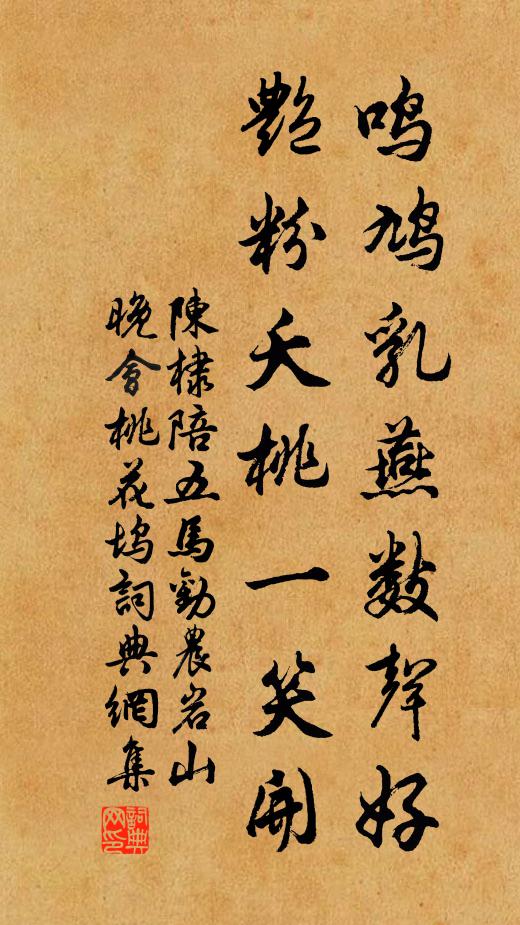 鸣鸠乳燕數聲好
艷粉夭桃一笑開
陳棣陪五馬勸農岩山
晚會桃花塢詞典網集
詞典
网印